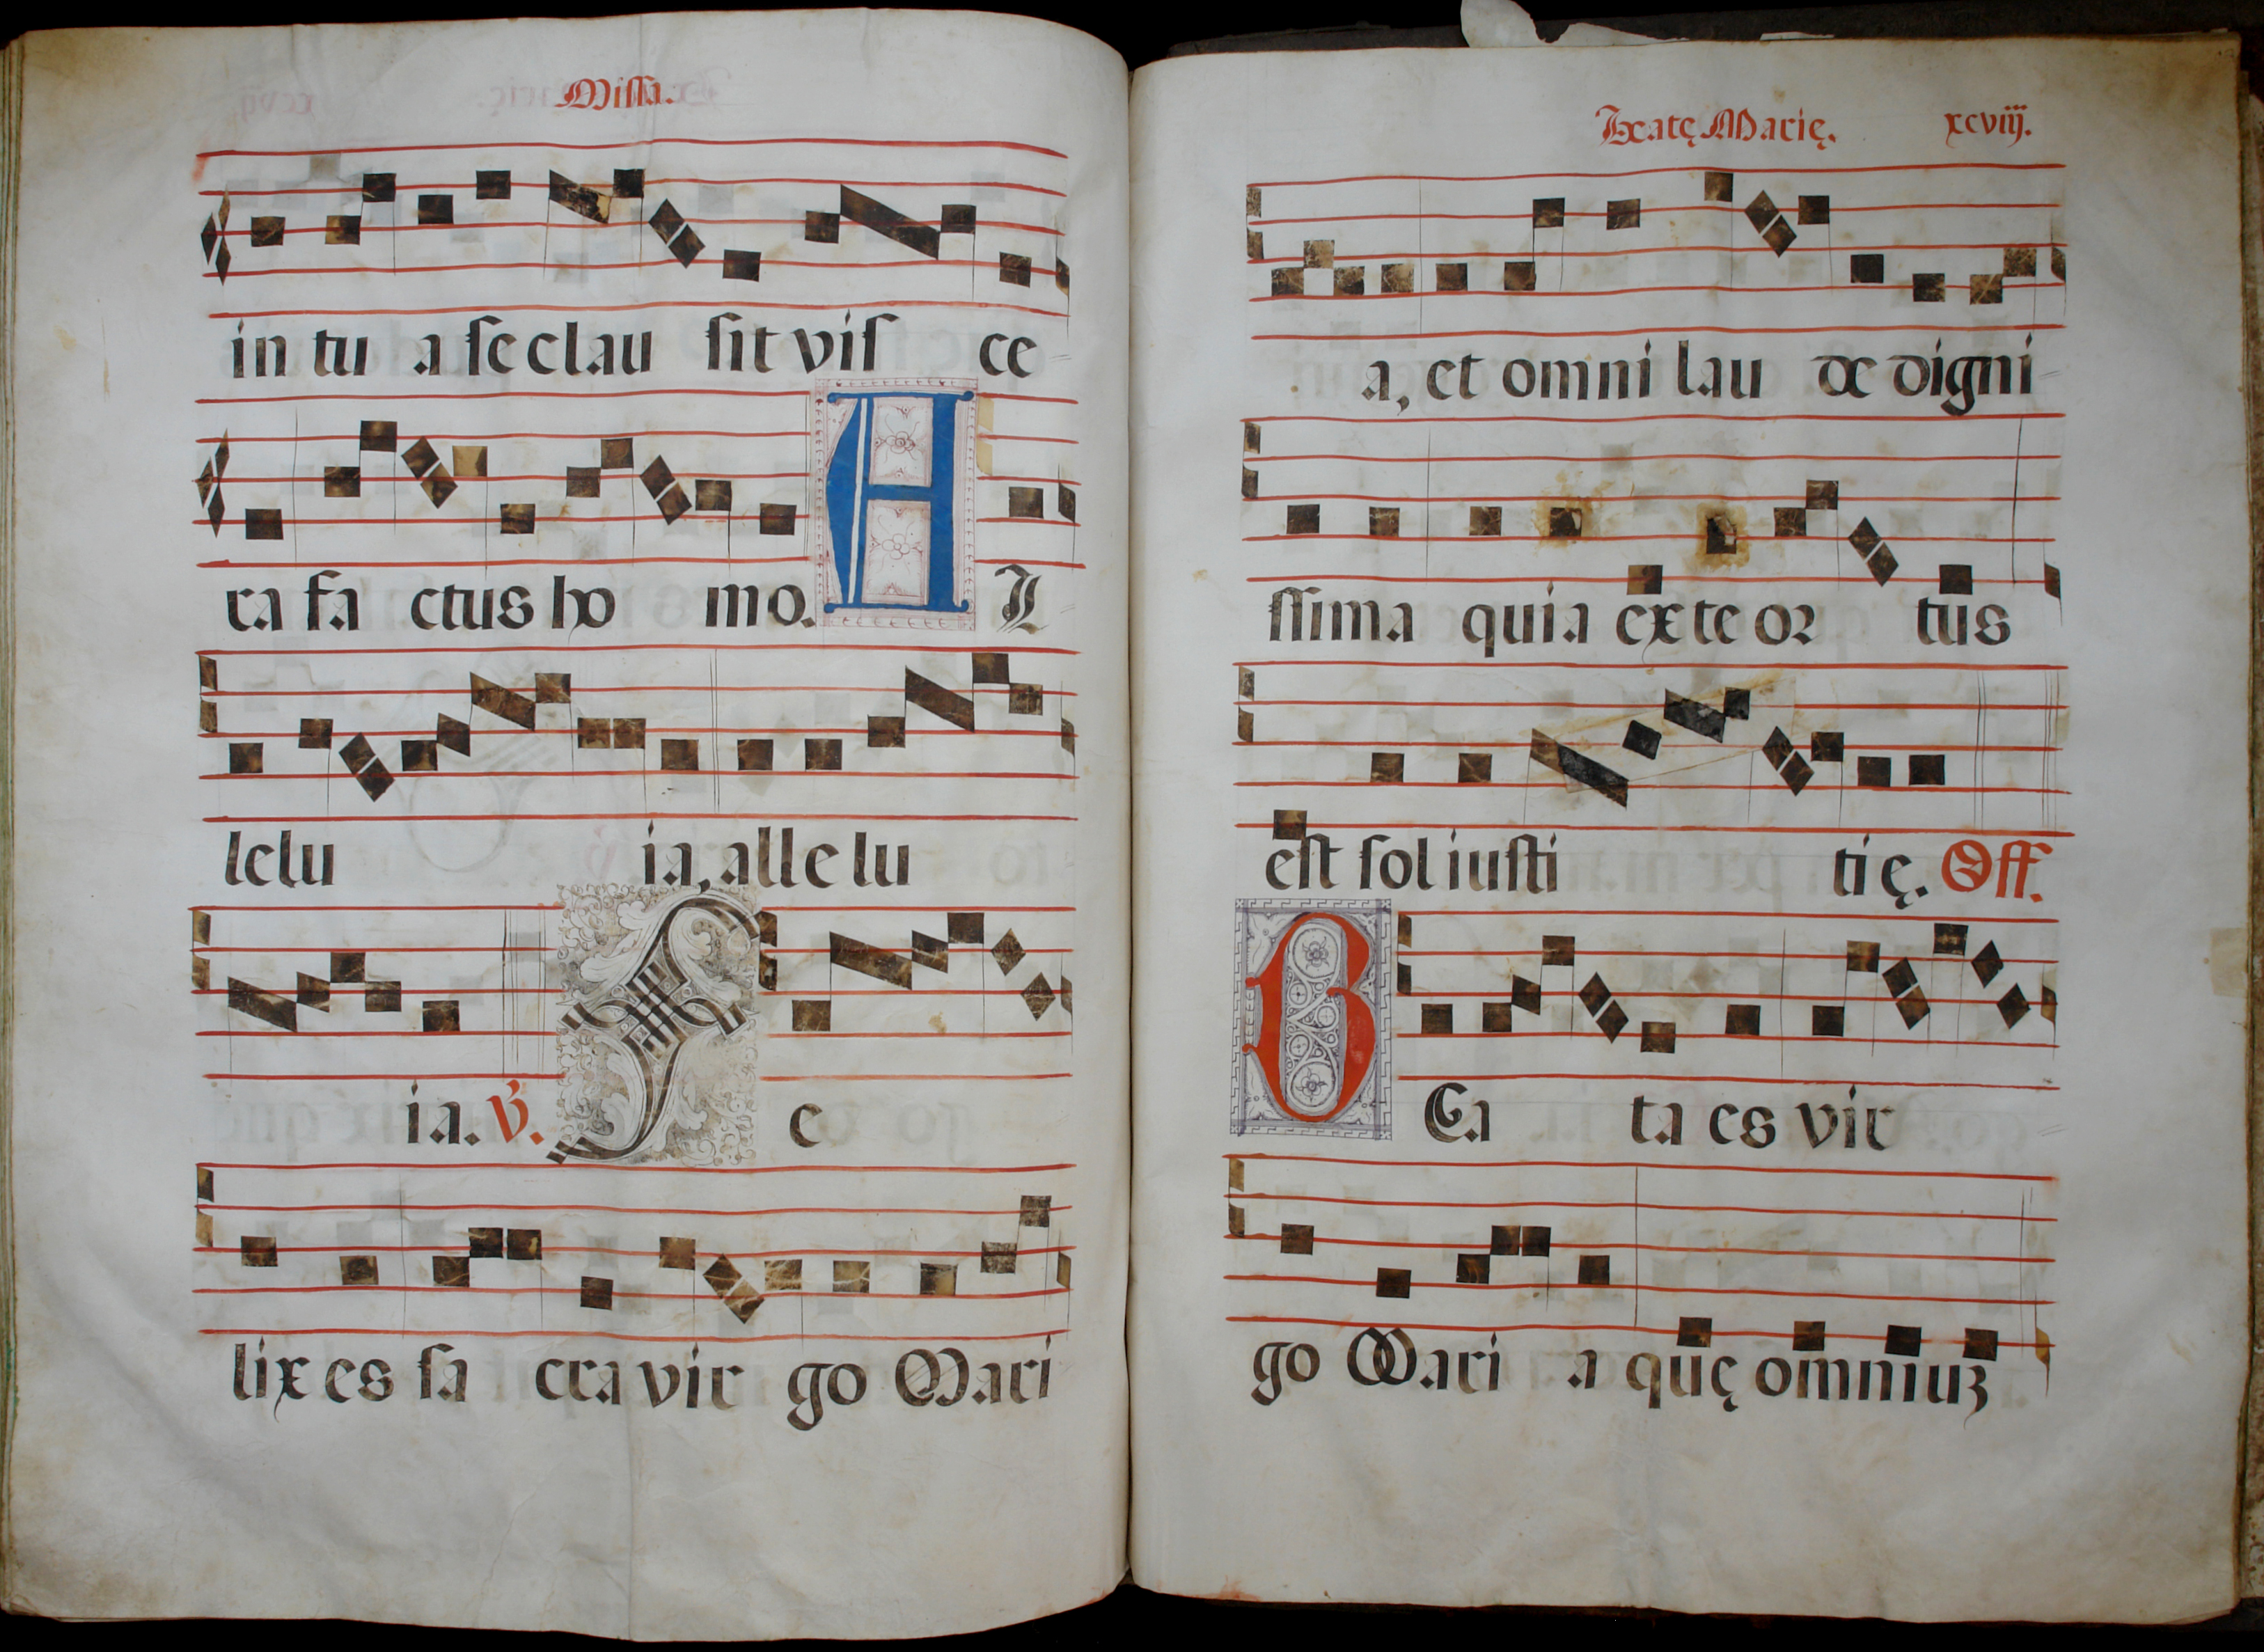 Missa.
in tu a se clau sit vis ce
ra fa ctus ho mo. A L
lelu ia, alle lu
ia. V. F e
lix es sa cra vir go Mari
Beatę Marię. xcviij.
a, et omni lau de digni
ssima quia ex te or tus
est sol iusti ti ę. Off.
B Ea ta es vir
go Mari a quę omniuꝫ